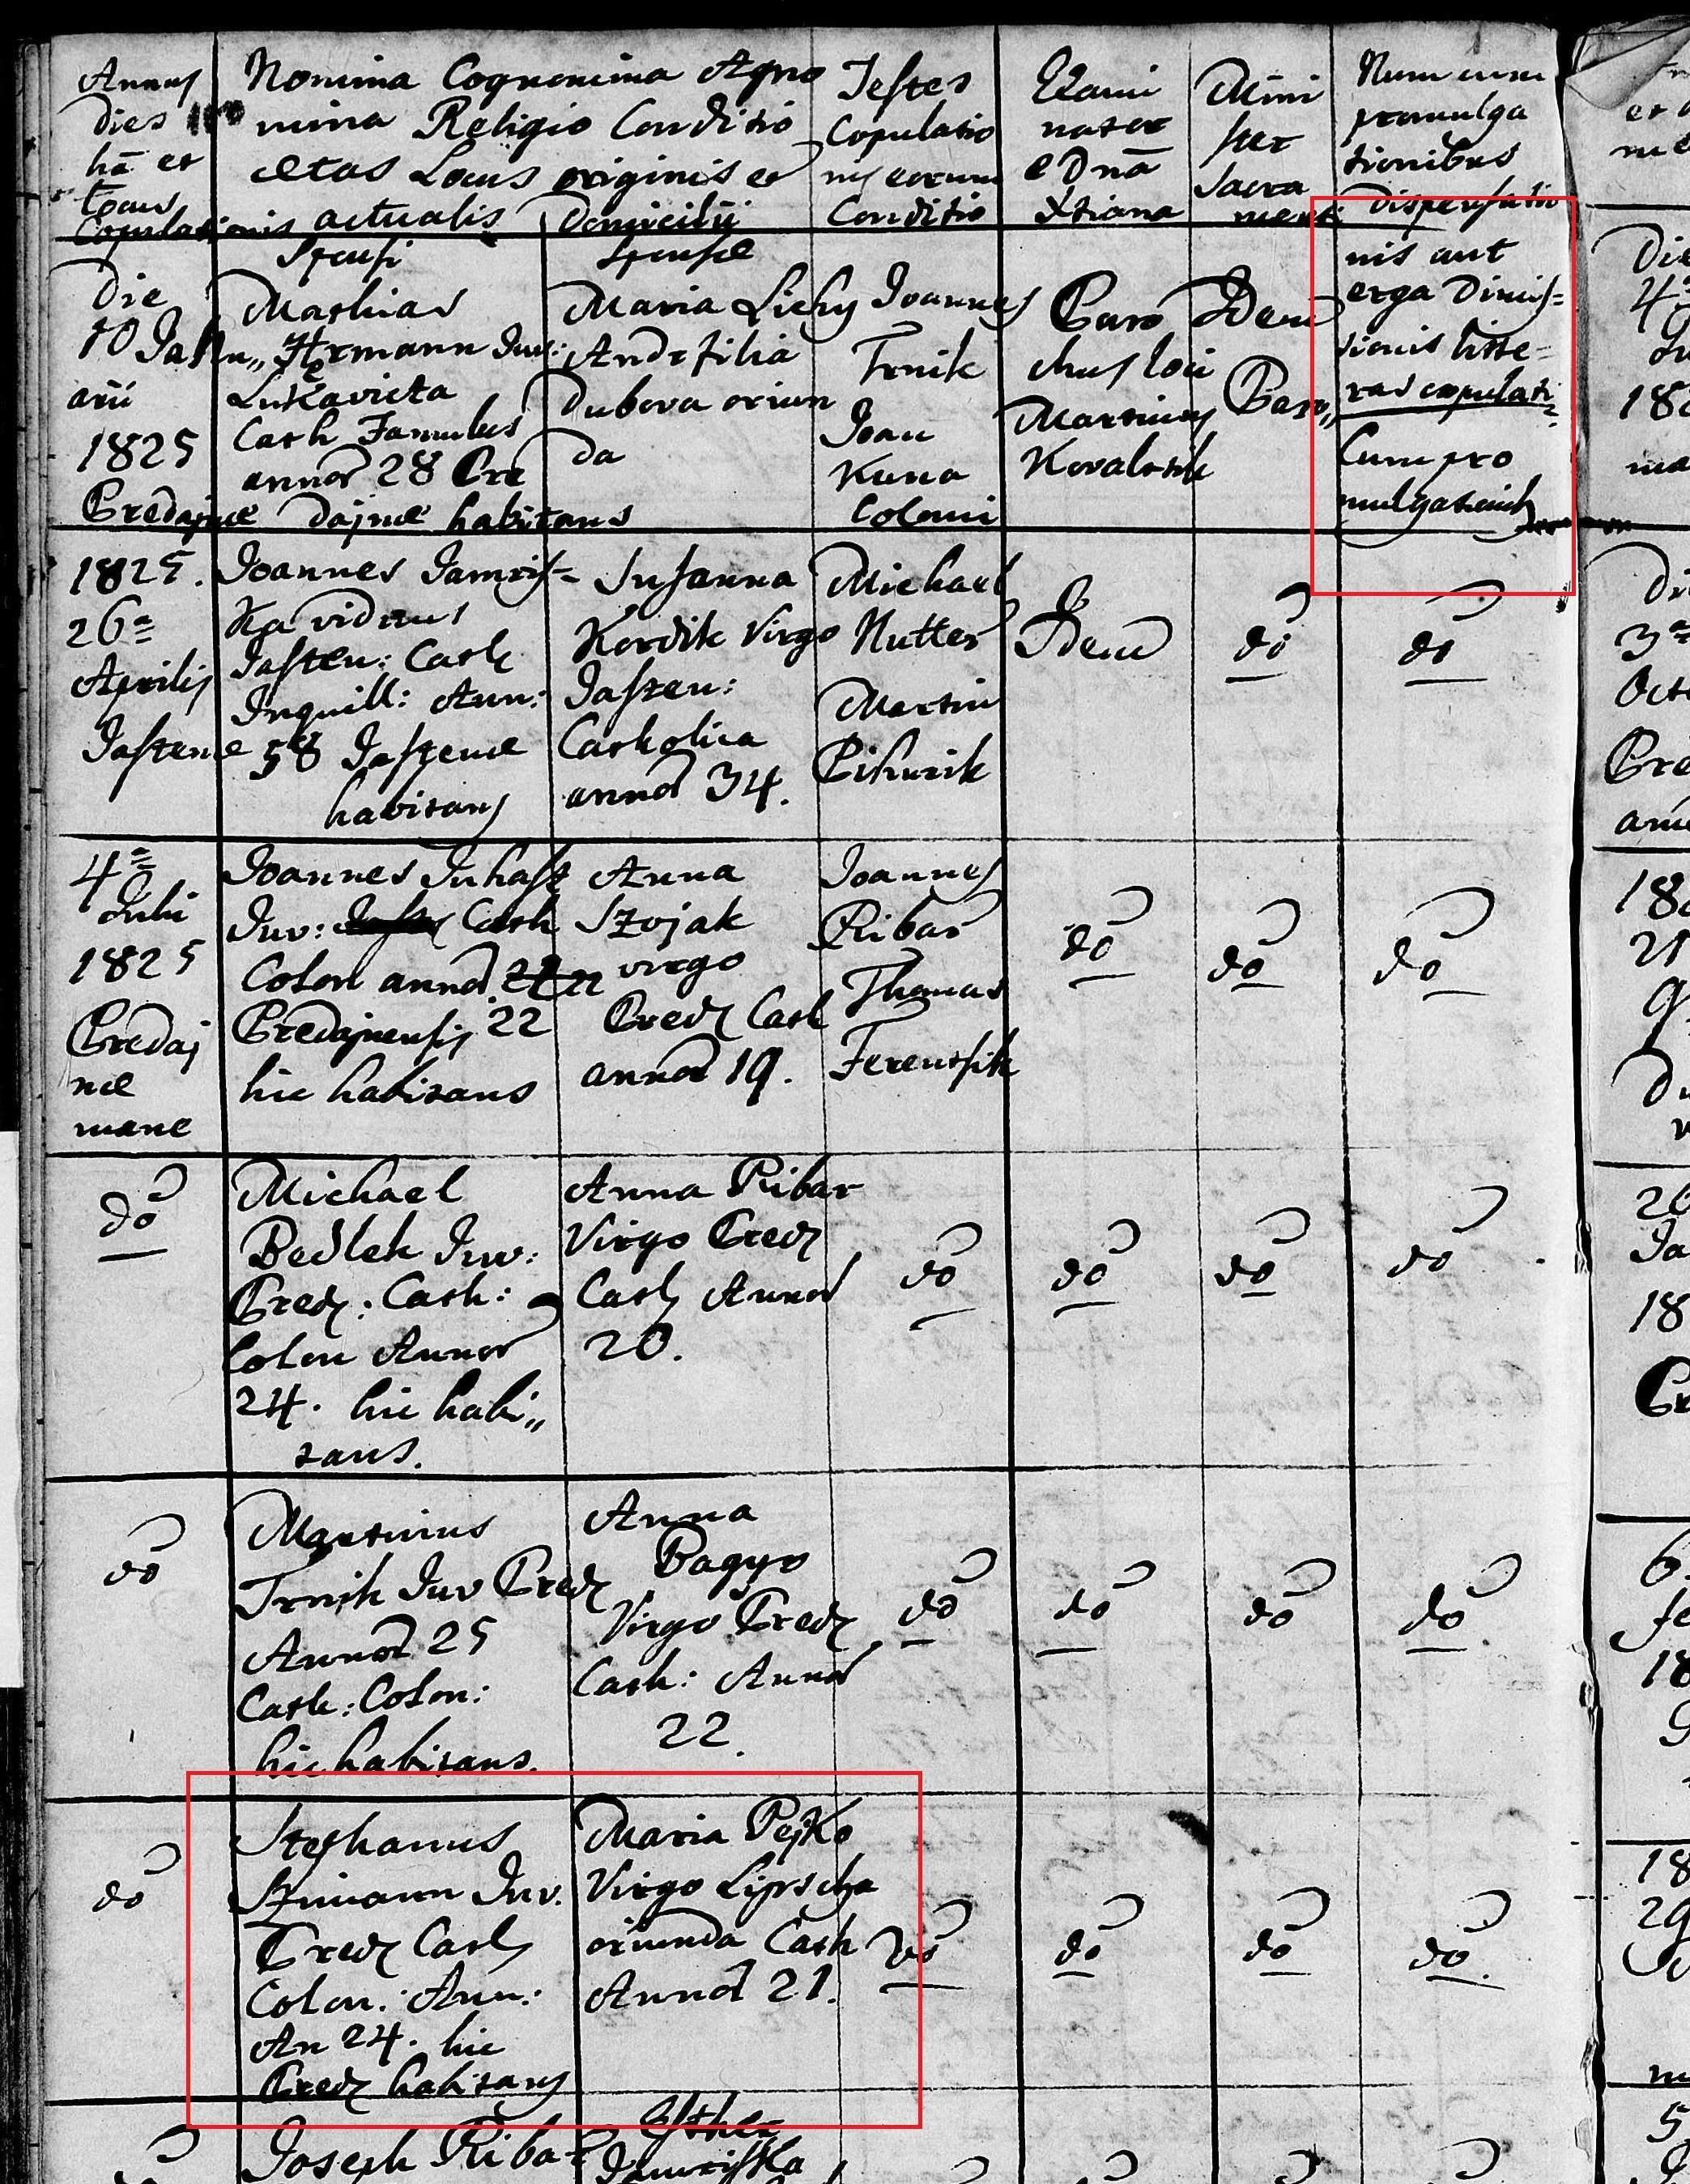 Annus
dies
hā et
Locus
Copulationis
Nomina Cognomina Agno
mina Religio Conditio
etas Locus originis et
actualis Domicilii
Sponsi
Sponsæ
Testes
Copulatio
nis eorum
Conditio
Exami
nator
e Dnā
Xtiana
Mini
ster
Sacra
menti
Num cum
promulga
tionibus
Dispensatio
nis aut
erga Dimis=
sionis litte=
ras copulati
Die
10 Janu„
arii
1825
Predajnæ
Mathias
Hermann Juv:
Lukavicta
Cath Famulus
annor 28 Pre
dajnæ habitans
Maria Lichy
Andr filia
Dubova oriun
da
Joannes
Trnik
Joan
Kuna
Coloni
Paro
chus loci
Martinus
Kovaltsik
Idem
Paro„
Cum pro
mulgationib
1825.
26a
Aprilis
Jasztene
Joannes Jamris=
ka viduus
Jaszten: Cath
Inquill: Ann:
58 Jasztenæ
habitans
Susanna
Kordik Virgo
Jaszen:
Catholica
annor 34.
Michael
Nutter
Martin
Pihurik
Idem
do
do
4a
Juli
1825
Predaj
næ
mane
Joannes Juhasz
Juv: Cath
Colon annor
Predajnensis 22
hic habitans
Anna
Szojak
virgo
Pred Cath
annor 19.
Joannes
Ribar
Thomas
Ferentsik
do
do
do
do
Michael
Bedleh Juv:
Pred: Cath:
Colon Annor
24. hic habi„
tans.
Anna Ribar
Virgo Pred
Cath Annor
20.
do
do
do
do
do
Martinus
Trnik Juv Pred
Annor 25
Cath: Colon:
hic habitans.
Anna
Bagyo
Virgo Pred
Cath: Annor
22.
do
do
do
do
do
Stephanus
Szimann Juv.
Pred Cath
Colon: Ann:
An 24. hic
Pred habitans
Maria Pejko
Virgo Lipscha
oriunda Cath
Annor 21.
do
do
do
do
do
Joseph Ribar
Esther
Jamriska